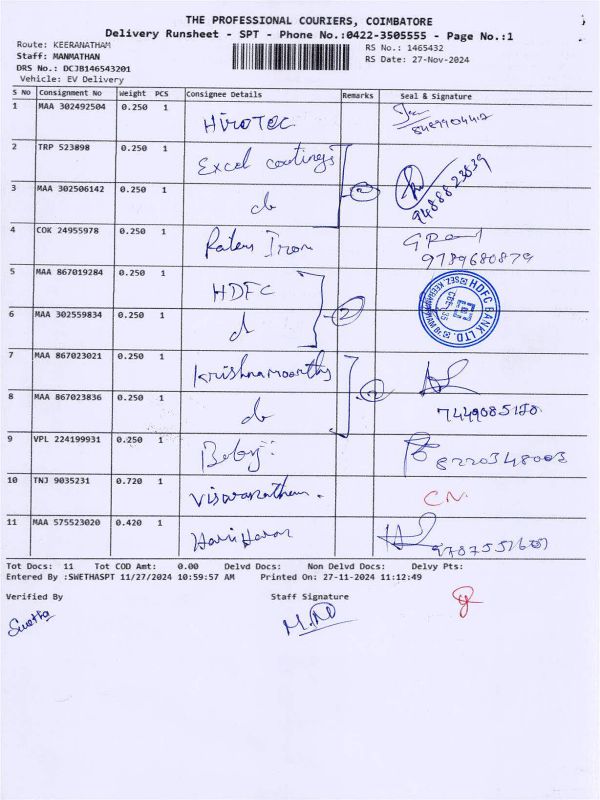 THE PROFESSIONAL COURIERS, COIMBATORE
Delivery Runsheet - SPT - Phone No.:0422-3505555 - Page No.:1
Route: KEERANATHAM
RS No.: 1465432
Staff: MANMATHAN
RS Date: 27-Nov-2024
DRS No.: DCJB146543201
Vehicle: EV Delivery
S No Consignment No Weight PCS Consignee Details Remarks Seal & Signature
1 MAA 302492504 0.250 1 HiroTec
2 TRP 523898 0.250 1 Excel coatings 2
3 MAA 302506142 0.250 1 do 9488823539
4 COK 24955978 0.250 1 9789680879
5 MAA 867019284 0.250 1 HDFC 2 HDFC BANK LTD.
6 MAA 302559834 0.250 1 do
7 MAA 867023021 0.250 1 Krishnamoorthy 2
8 MAA 867023836 0.250 1 do
9 VPL 224199931 0.250 1 8220348003
10 TNJ 9035231 0.720 1 C.N.
11 MAA 575523020 0.420 1 HariHaran
Tot Docs: 11 Tot COD Amt: 0.00 Delvd Docs: Non Delvd Docs: Delvy Pts:
Entered By :SWETHASPT 11/27/2024 10:59:57 AM Printed On: 27-11-2024 11:12:49
Verified By Staff Signature
Swetha